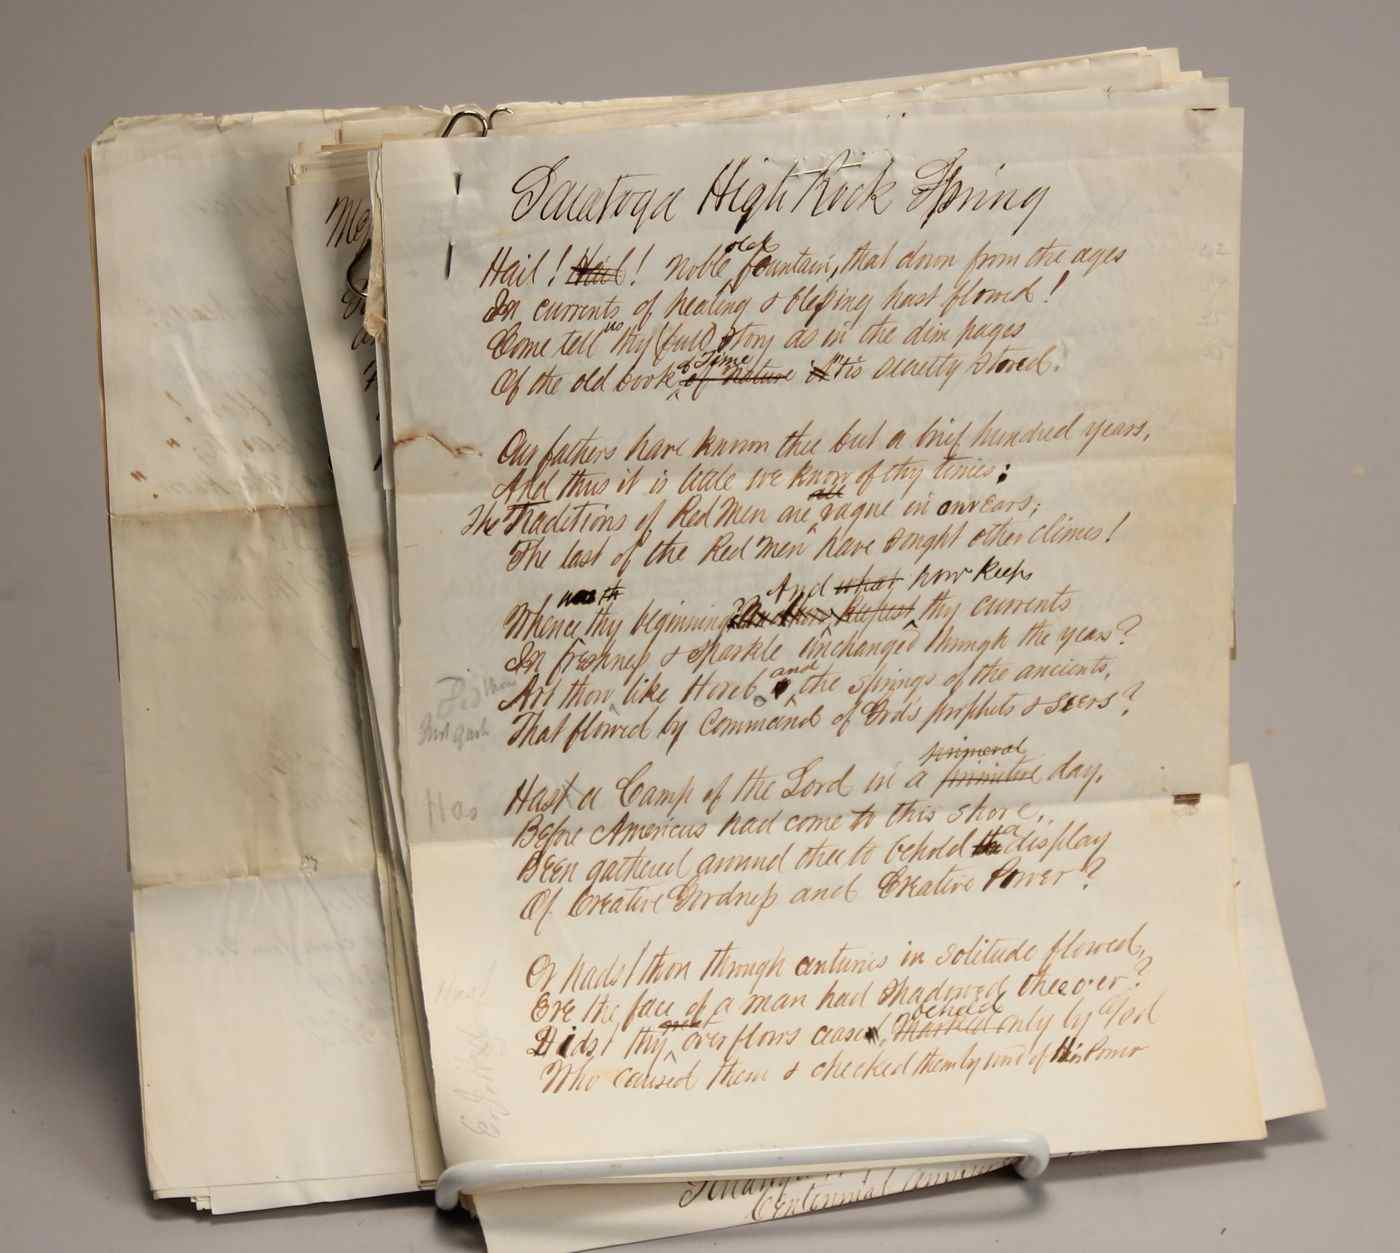 Saratoga High Rock Spring
Hail! Hail! Noble old fountain, that down from the ages
In currents of healing & blessing hast flowed!
Come tell us thy (full) story as in the dim pages
Of the old book of Time of Nature 'tis secretly stored.
Our fathers have known thee but a brief hundred years,
And thus it is little we know of thy times;
The Traditions of Red Men are all vague in our ears;
The last of the Red Men have sought other climes!
Whence thy beginning? And what now keeps thy currents
In freshness & sparkle unchanged through the years?
Art thou, like Horeb and the springs of the ancients,
That flowed by command of God's prophets & seers?
Has
Hast a Camp of the Lord in a primeval primitive day,
Before Americus had come to this shore,
Been gathered around thee to behold the a display
Of Creative Goodness and Creative Power?
Or hadst thou through centuries in solitude flowed,
Ere the face of a man had shadowed thee over?
Didst thy great overflows cease, Marked beheld only by God
Who caused them & checked them by word of His Power
Centennial